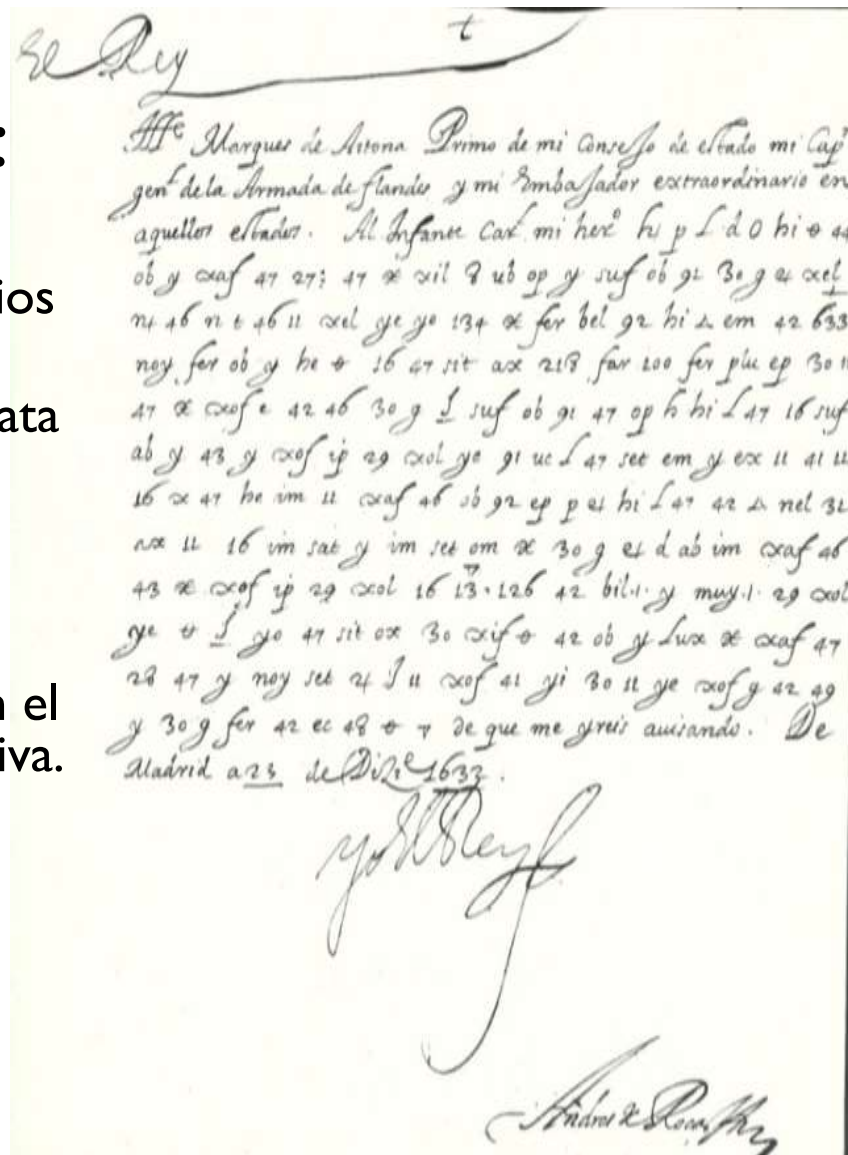 :
ios
ata
n el
iva.
t
El Rey
Marques de Aitona Primo de mi Consejo de estado mi Cap
gen.l de la Armada de flandes y mi Embajador extraordinario en
aquellos estados. Al Infante Car.l mi her.o hi p d 0 hi 44
ob y xaf 47 27; 47 xil 8 ub op y suf ob 91 30 g 21 xel
46 n t 46 11 xel ye yo 134 fer bel 92 hi em 42 633
noy fer ob y he 16 47 sit ax 218 far 100 fer plu ep 30 11
47 xof e 42 46 30 g suf ob 91 47 op h hi 47 16 suf
ab y 43 y xof ip 29 xol ye 91 uc 47 set em y ex 11 41 11
16 x 47 he im 11 xaf 46 ob 92 ep p et hi 47 42 nel 31
ax 11 16 im sat y im set om 30 g et d ab im xaf 46
43 xof ip 29 xol 16 13.126 42 bil.1. y muy.1. 29 xol
ye yo 47 sit ox 30 xif 42 ob y lux xaf 47
28 47 y noy set 4 11 xof 41 yi 30 11 ye xof g 42 49
y 30 g fer 42 ec 48 de que me yreis auisando. De
Madrid a 23 de Diz.e 1633.
yo el Rey
Andres de Rocas